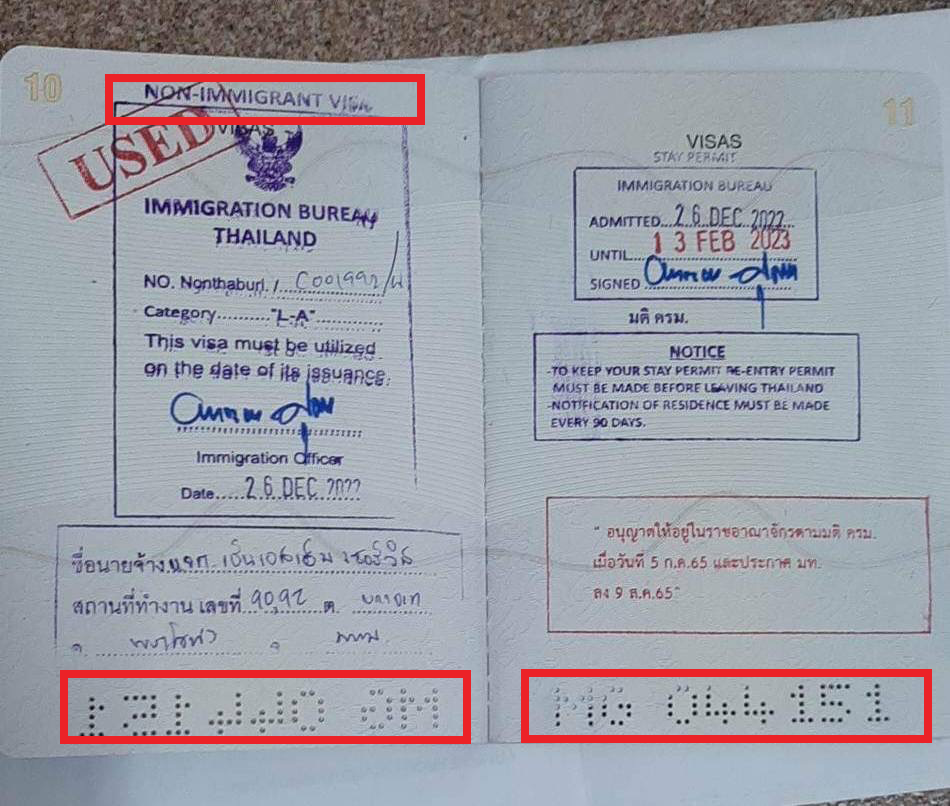 10
NON-IMMIGRANT VISA
USED
VISAS
IMMIGRATION BUREAU
THAILAND
NO. Nonthaburi / C001992/
Category.........."L-A"
This visa must be utilized
on the date of its issuance.
Immigration Officer
Date.....26 DEC 2022
ชื่อนายจ้าง หจก. เอ็นเอสเอ็ม เซอร์วิส
สถานที่ทำงาน เลขที่ 90,92 ต.
11
VISAS
STAY PERMIT
IMMIGRATION BUREAU
ADMITTED...26 DEC 2022
UNTIL...13 FEB 2023
SIGNED
มติ ครม.
NOTICE
-TO KEEP YOUR STAY PERMIT RE-ENTRY PERMIT
MUST BE MADE BEFORE LEAVING THAILAND
-NOTIFICATION OF RESIDENCE MUST BE MADE
EVERY 90 DAYS.
" อนุญาตให้อยู่ในราชอาณาจักรตามมติ ครม.
เมื่อวันที่ 5 ก.ค.65 และประกาศ มท.
ลง 9 ส.ค.65"
MG 044151